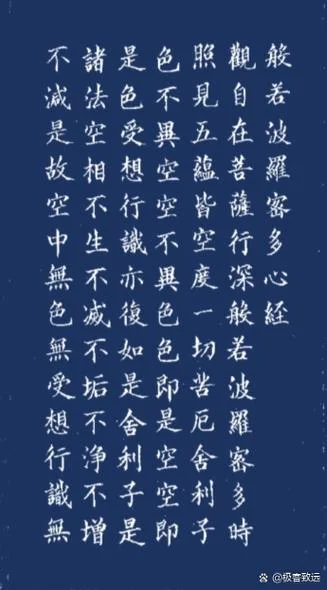 般若波羅密多心経
觀自在菩薩行深般若波羅密多時
照見五蘊皆空度一切苦厄舍利子
色不異空空不異色色即是空空即
是色受想行識亦復如是舍利子是
諸法空相不生不减不垢不净不增
不減是故空中無色無受想行識無
@极客致远